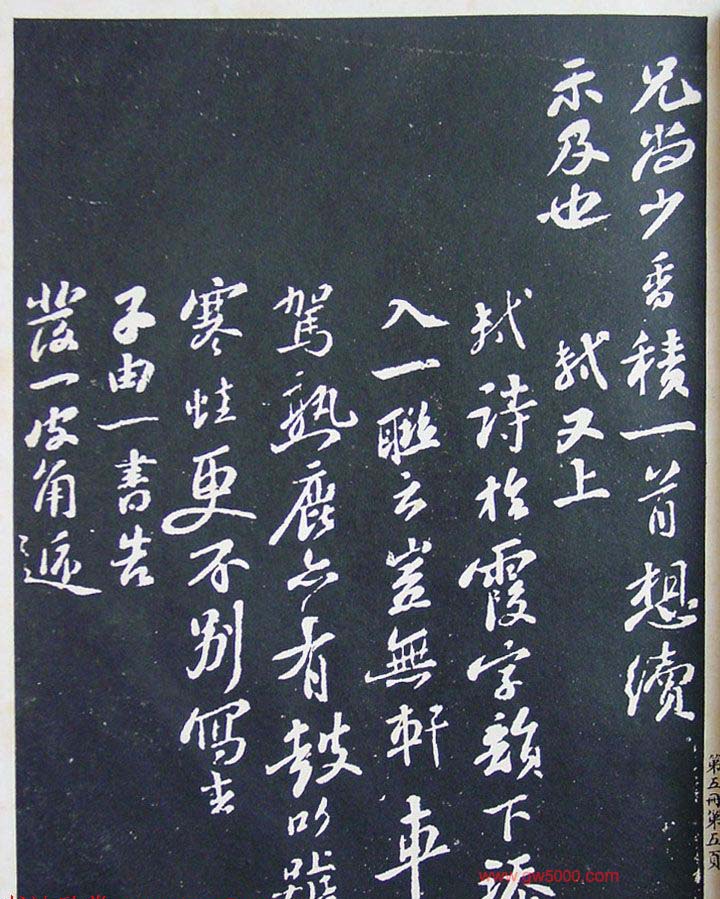 兄尚少香積一首想續
示及也
軾又上
軾詩於霞字韻下添
入一聯云豈無軒車
駕熟鹿亦有鼓吹號
寒蛙更不別寫去
子由一書告
發一皮角遞
第五冊第五頁
www.gw5000.com